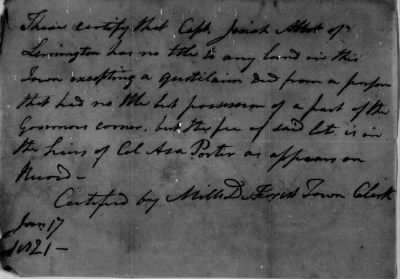 These certify that Capt. Josiah Abbot of
Lemington has no ttle to any land in this
Town excepting a quitclaim ded from a person
that had no ttle but possession of a part of the
Governors corner, but the fee of said lot is in
the heirs of Col Asa Porter as appears on
Record —
Certified by Mills D Town Clerk
Jan 17
1821 —